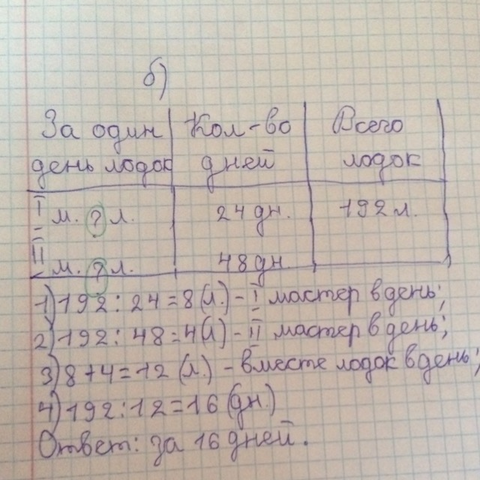 б)
За один Кол-во Всего
день лодок дней лодок
I м. ? л. 24 дн. 192 л.
II м. ? л. 48 дн.
1) 192 : 24 = 8 (л.) - I мастер в день;
2) 192 : 48 = 4 (л) - II мастер в день;
3) 8 + 4 = 12 (л.) - вместе лодок в день;
4) 192 : 12 = 16 (дн.)
Ответ: за 16 дней.